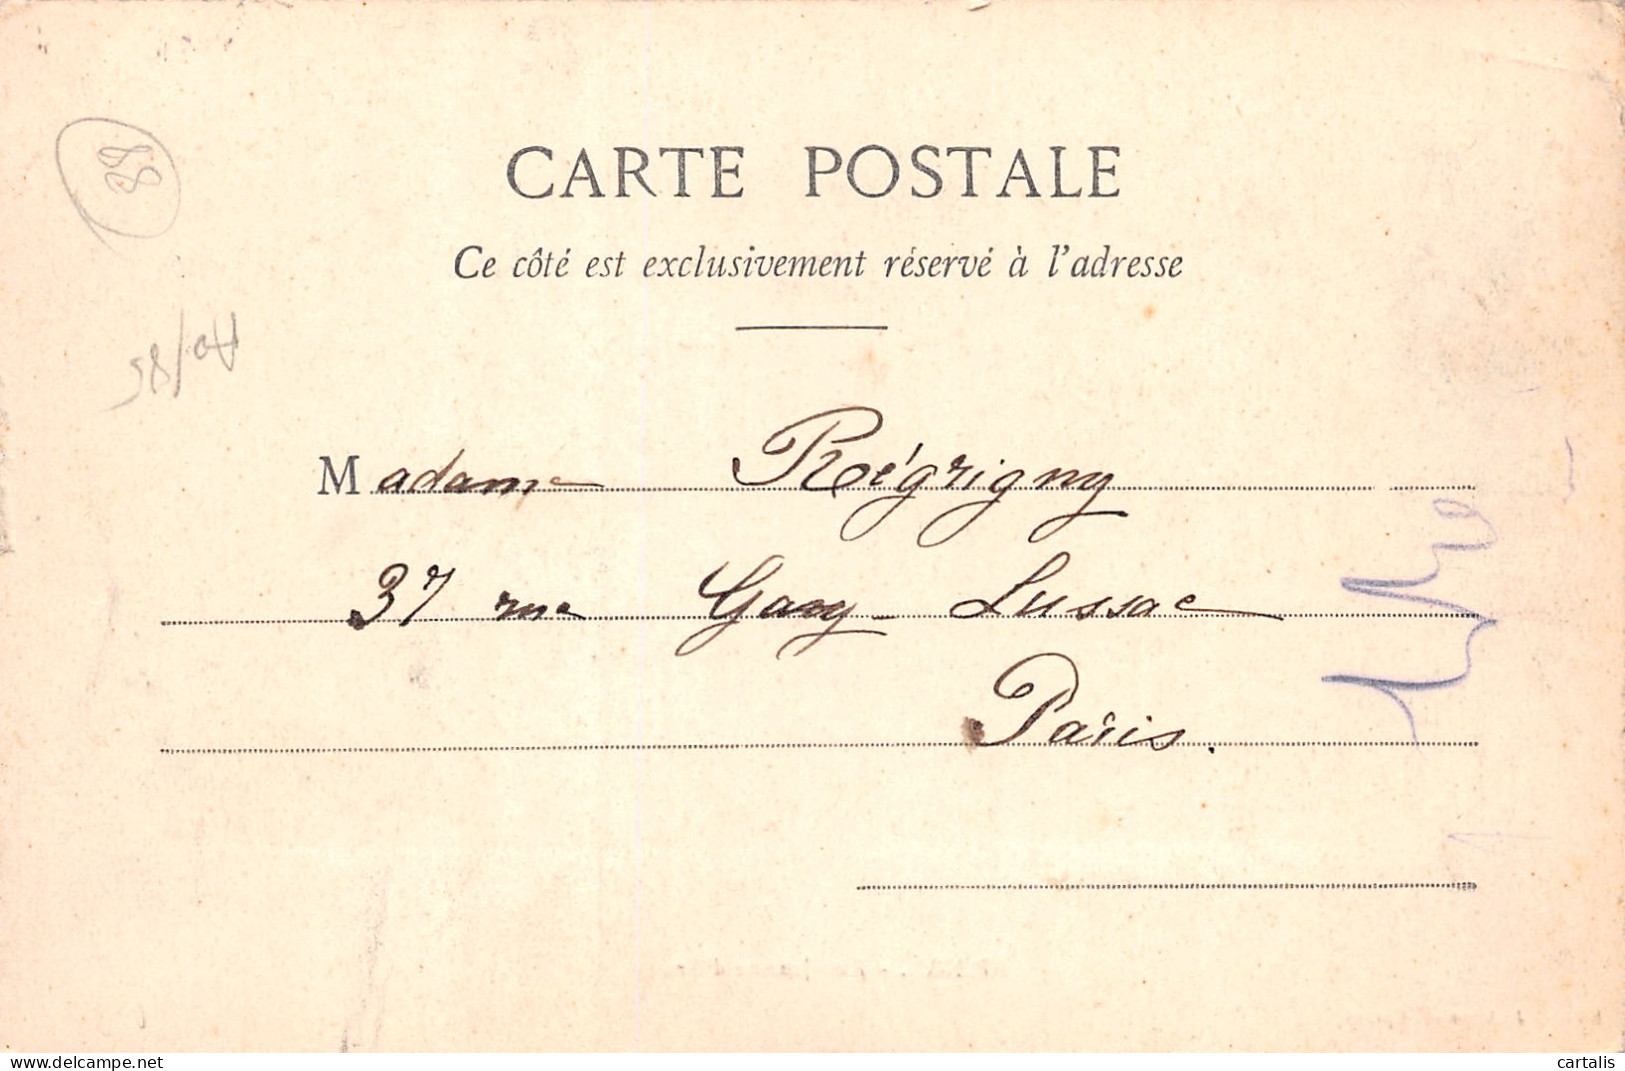 88
CARTE POSTALE
Ce côté est exclusivement réservé à l'adresse
Madame Régrigny
37 rue Gay-Lussac
Paris.
www.delcampe.net
cartalis